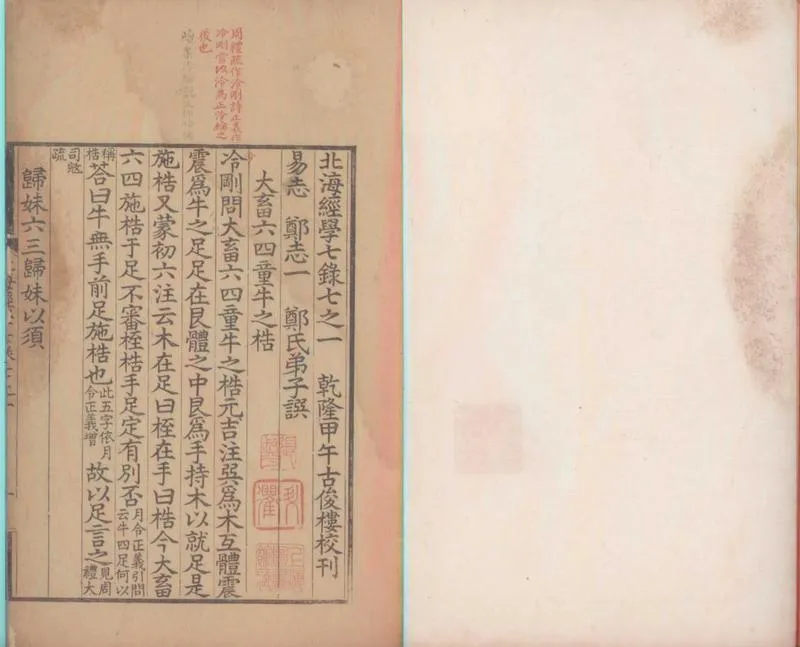 周禮疏作冷剛詩正義作
冷剛當以冷為正
後也
北海經學七錄七之一 乾隆甲午古俊樓校刊
易志 鄭志一 鄭氏弟子譔
大畜六四童牛之梏
冷剛問大畜六四童牛之梏元吉注巽爲木互體震
震爲牛之足足在艮體之中艮爲手持木以就足是
施梏又蒙初六注云木在足曰桎在手曰梏今大畜
六四施梏于足不審桎梏手足定有別否月令正義引問云牛四足何以
稱梏答曰牛無手前足施梏也此五字依月令正義增故以足言之見周禮大
司𡨥疏
歸妹六三歸妹以須